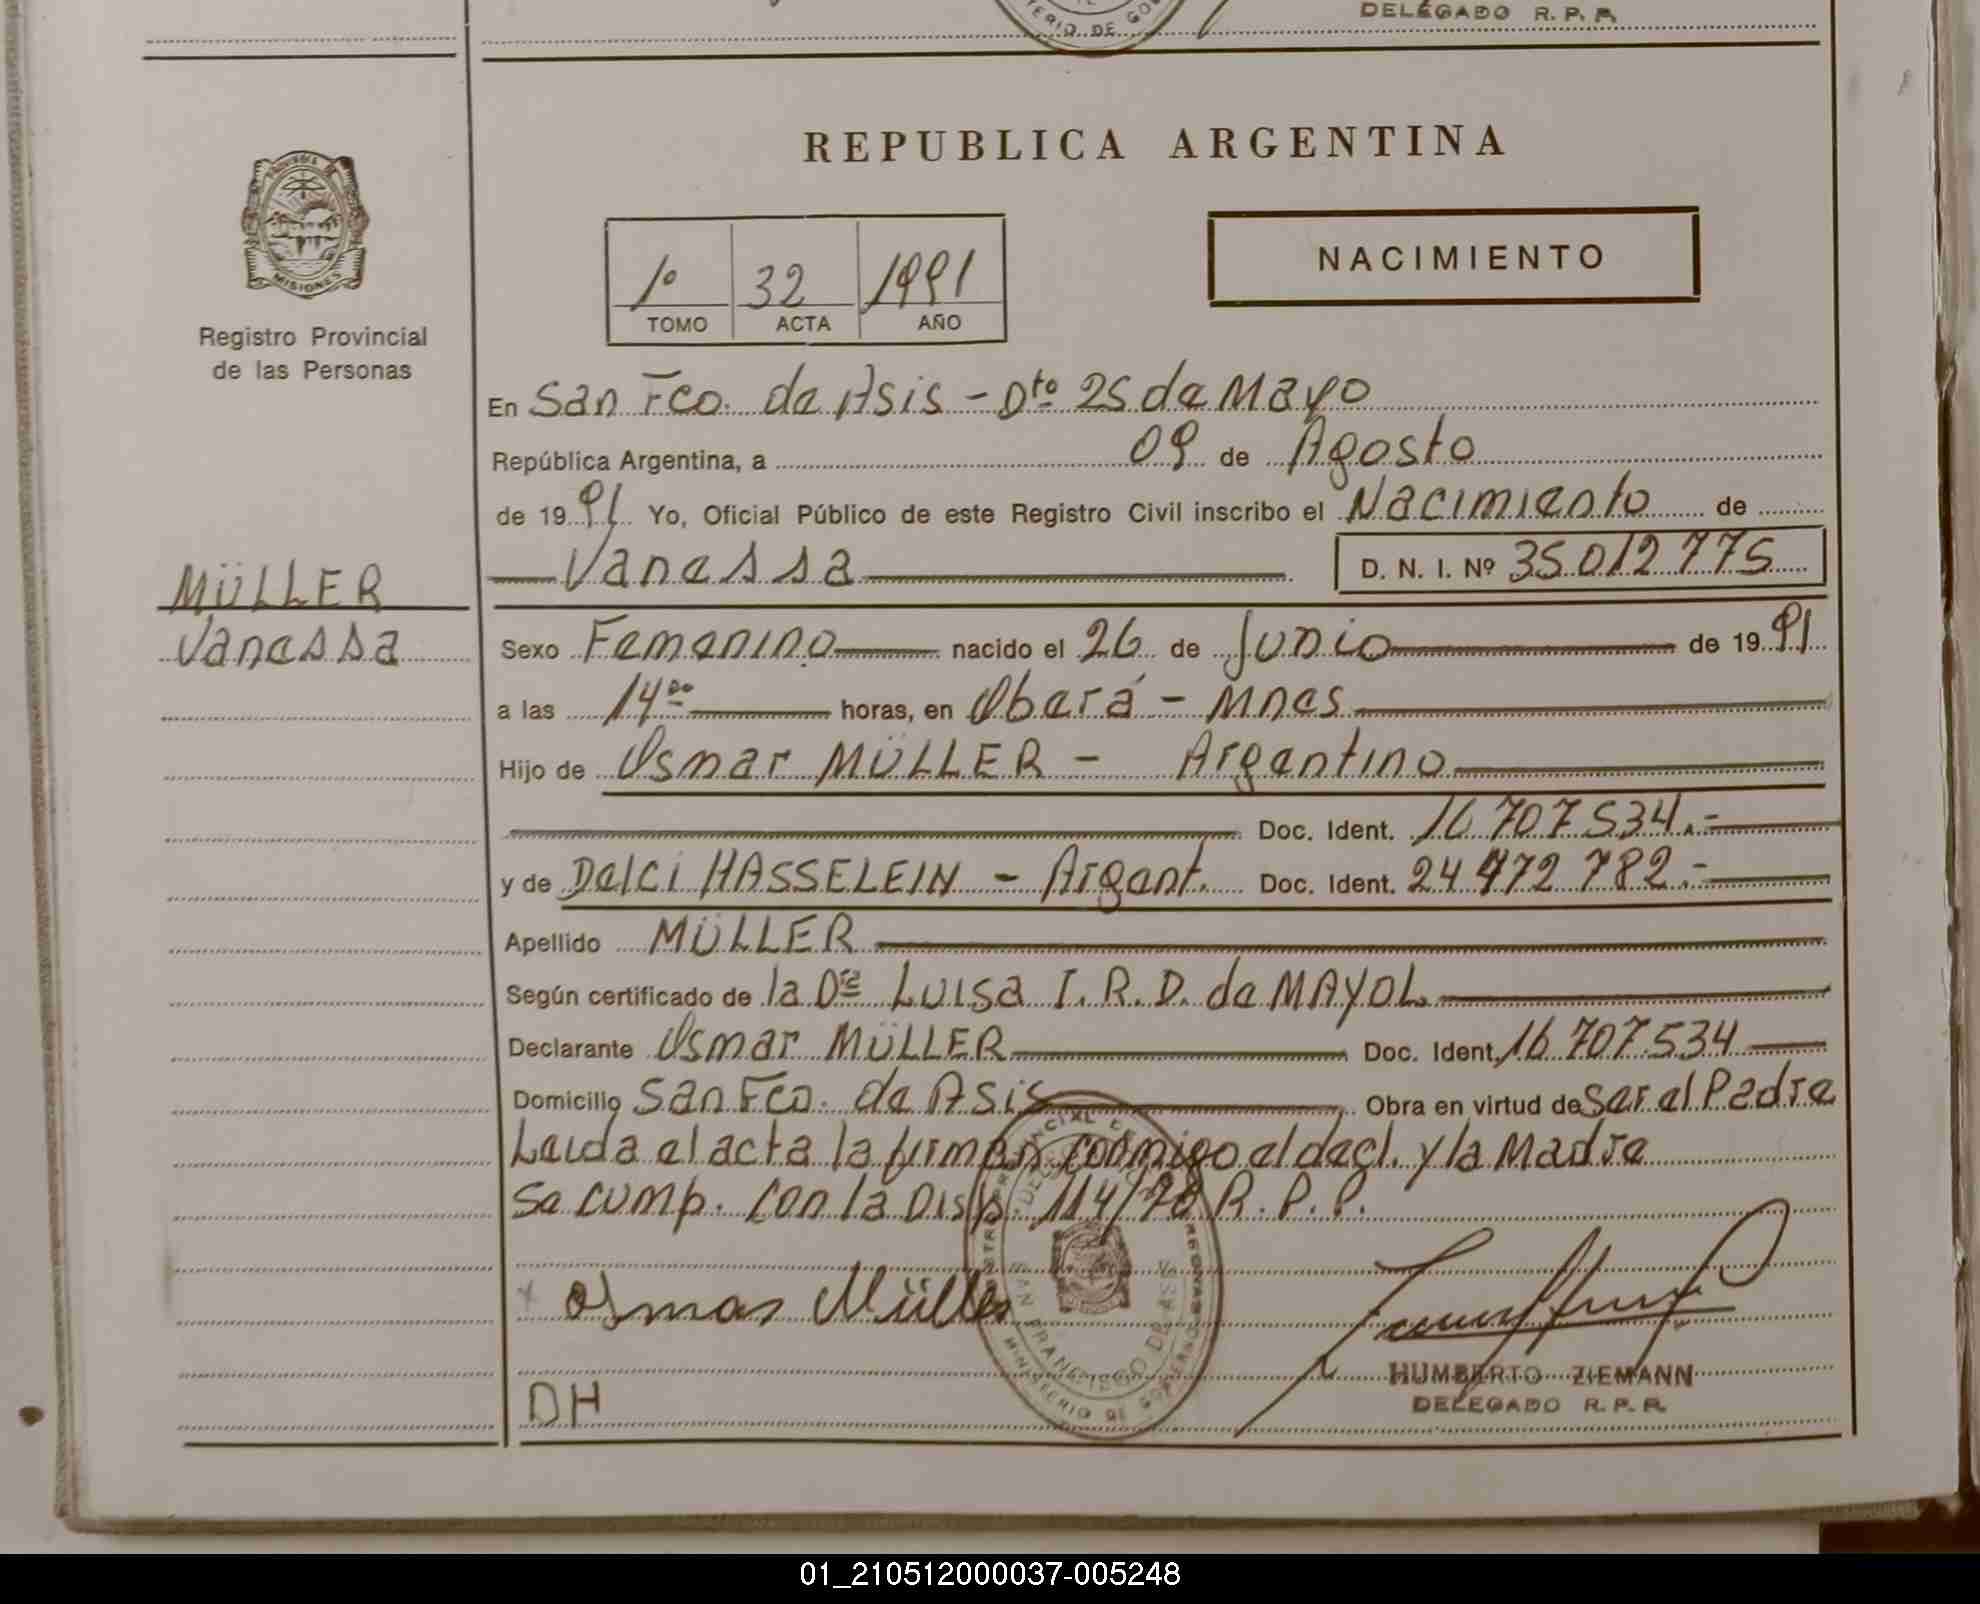 DELEGADO R. P. P.
MINISTERIO DE GOB
REPUBLICA ARGENTINA
PROVINCIA DE
MISIONES
Registro Provincial
de las Personas
1º 32 1991
TOMO ACTA AÑO
NACIMIENTO
En San Fco. de Asis - Dto 25 de Mayo
República Argentina, a 09 de Agosto
de 1991 Yo, Oficial Público de este Registro Civil inscribo el Nacimiento de
Vanessa D. N. I. Nº 35 012 775
MÜLLER
Vanessa
Sexo Femenino nacido el 26 de Junio de 1991
a las 14 00 horas, en Oberá - Mnes
Hijo de Osmar MÜLLER - Argentino
Doc. Ident. 16 707 534.-
y de Delci HASSELEIN - Argent. Doc. Ident. 24 472 782.-
Apellido MÜLLER
Según certificado de la Dra Luisa I. R. D. de MAYOL
Declarante Osmar MÜLLER Doc. Ident. 16 707 534
Domicilio San Fco. de Asis Obra en virtud de Ser el Padre
Leida el acta la firman conmigo el decl. y la Madre
Se cump. con la Disp. 114/78 R. P. P.
Osmar Müller
SAN FRANCISCO DE ASIS
MINISTERIO DE GOBIERNO
HUMBERTO ZIEMANN
DELEGADO R. P. P.
DH
01_210512000037-005248